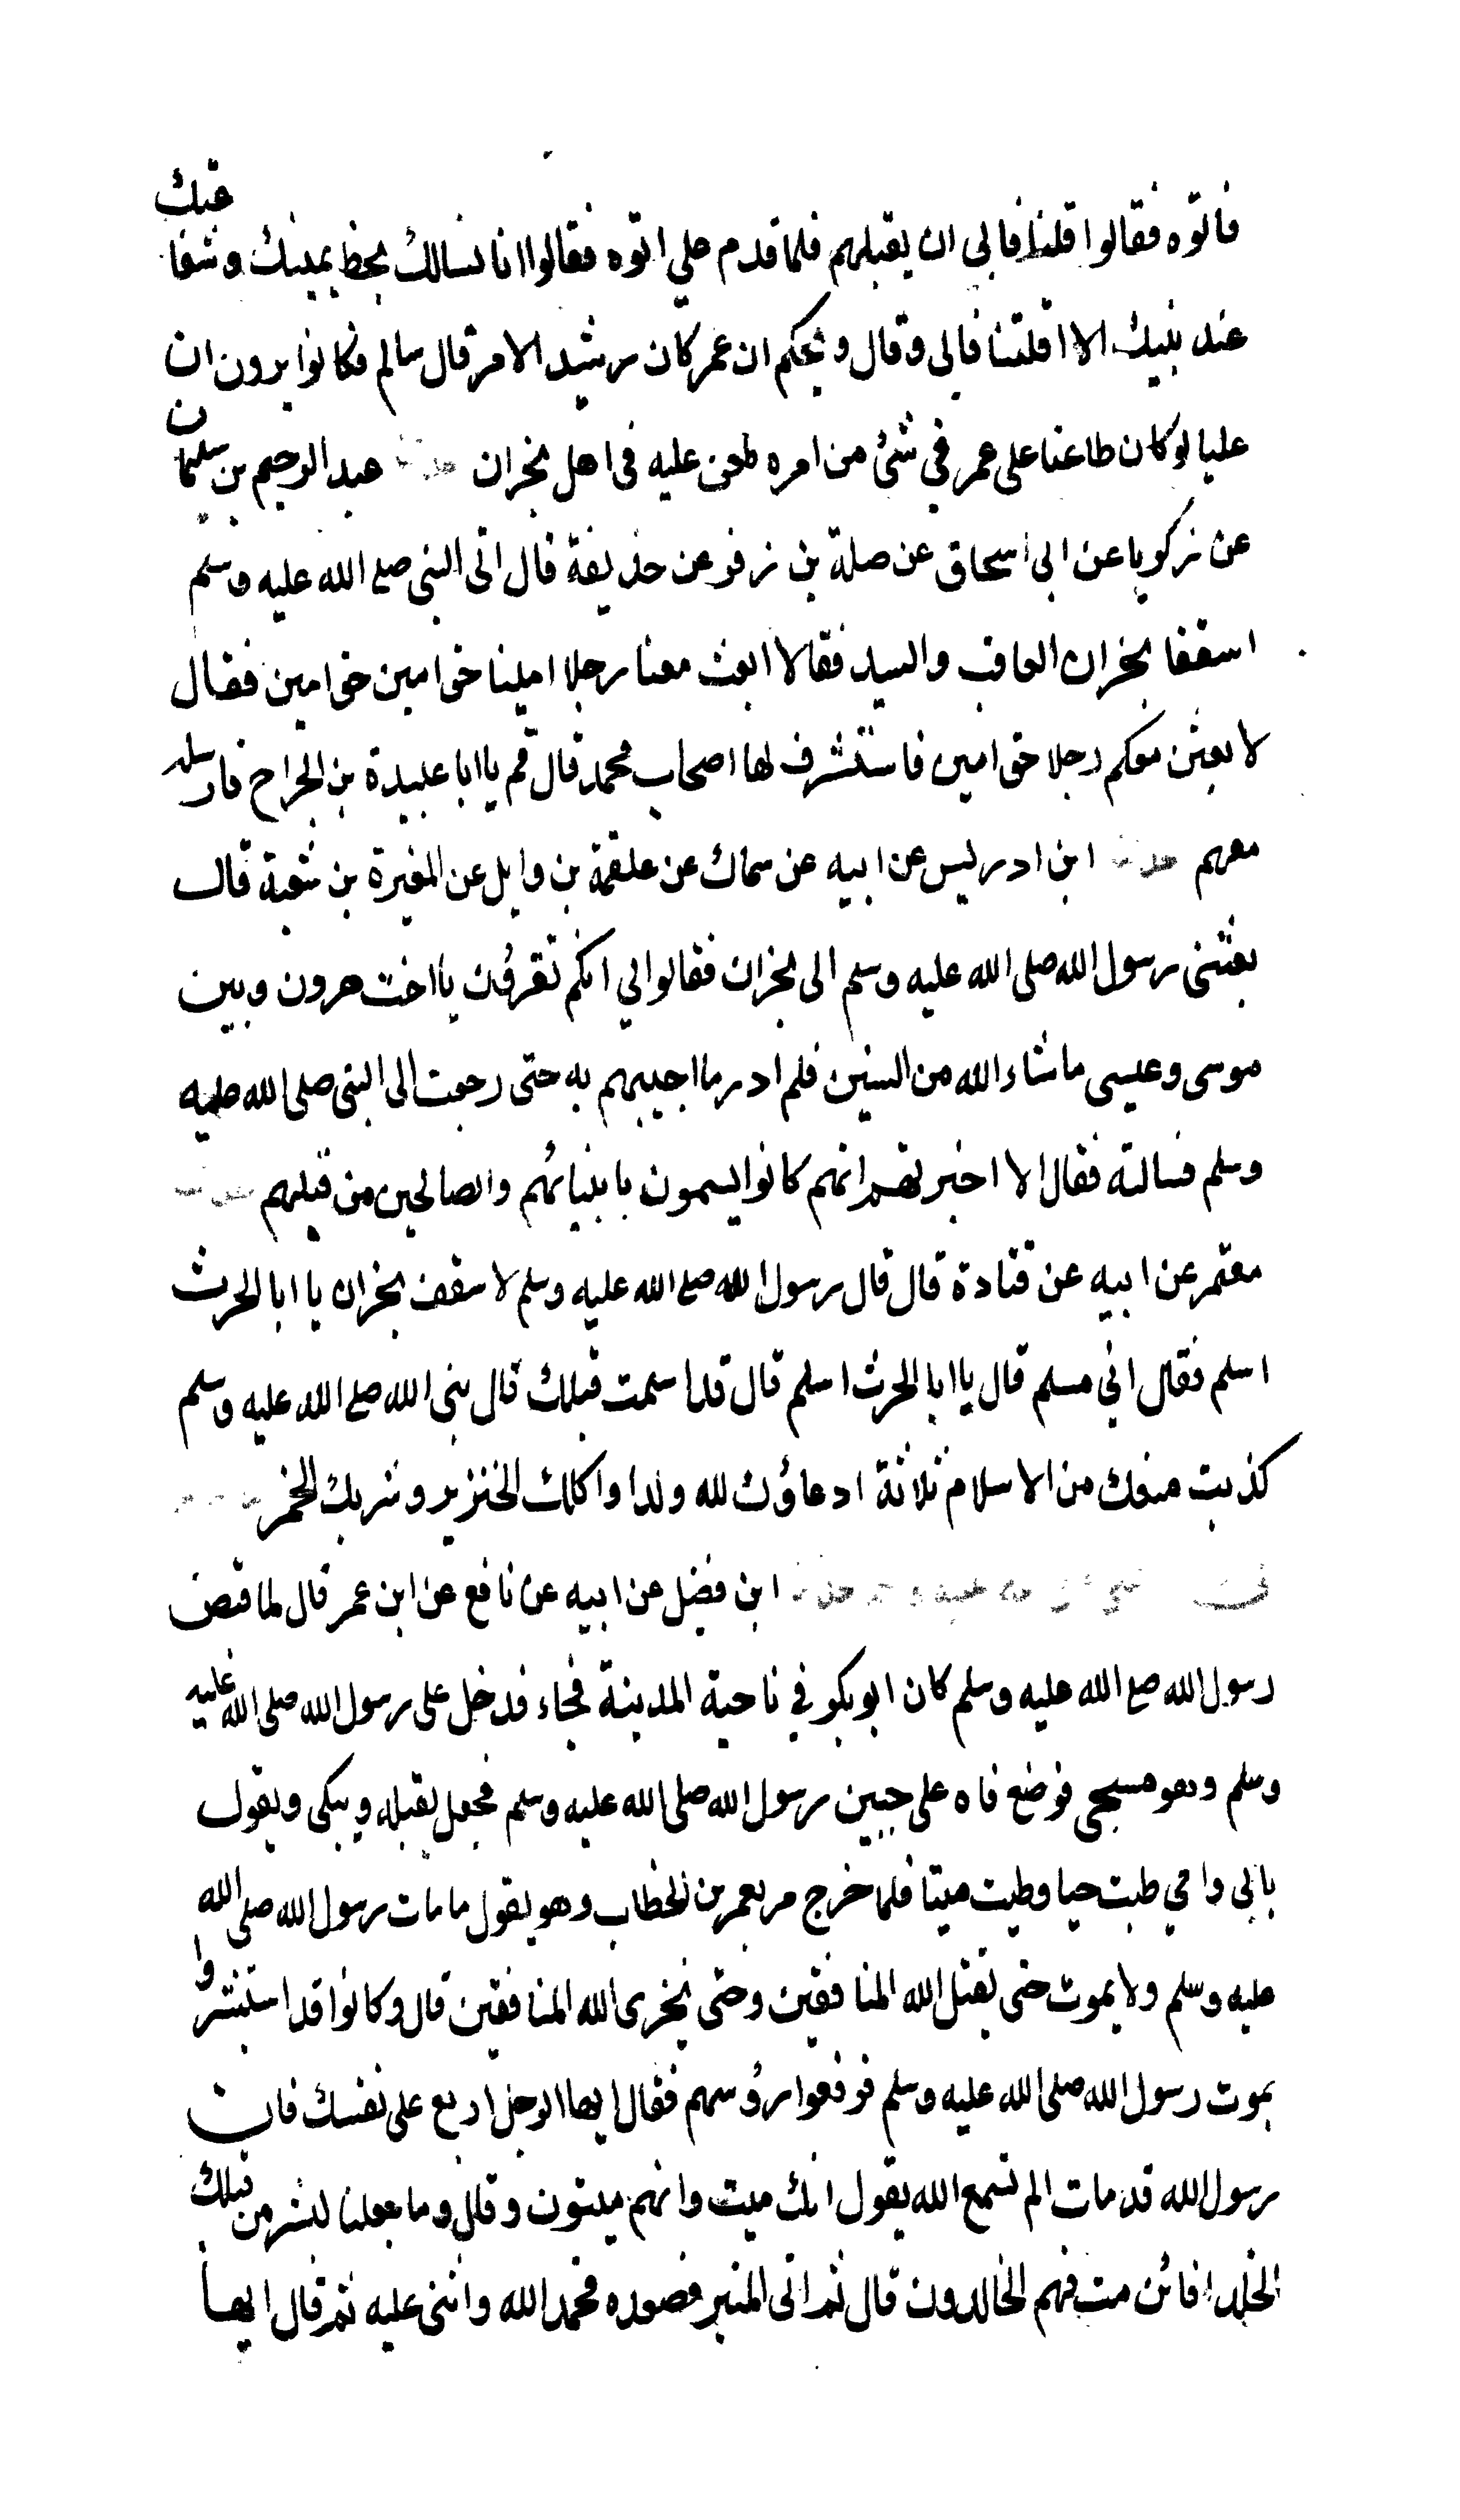 فاتوه فقالوا اقلنا فابى ان يقيلهم فلما قدم علي اتوه فقالوا انا نسالك بخط يمينك وشفاعتك
عند نبيك الا اقلتنا فابى وقال ويحكم ان عمر كان رشيد الامر قال سالم فكانوا يرون ان
عليا لو كان طاعنا على عمر في شئ من امره طعن عليه في اهل نجران حدثنا عبد الرحيم بن سليمان
عن زكريا عن ابي اسحاق عن صلة بن زفر عن حذيفة قال اتى النبي صلع الله عليه وسلم
اسقفا نجران العاقب والسيد فقالا ابعث معنا رجلا امينا حق امين حق امين فقال
لابعثن معكم رجلا حق امين فاستشرف لها اصحاب محمد قال قم يا ابا عبيدة بن الجراح فارسله
معهم حدثنا ابن ادريس عن ابيه عن سماك عن علقمة بن وايل عن المغيرة بن شعبة قال
بعثنى رسول الله صلى الله عليه وسلم الى نجران فقالوا لي انكم تقرؤن يا اخت هرون وبين
موسى وعيسى ماشاء الله من السنين فلم ادر ما اجيبهم به حتى رجعت الى النبى صلى الله عليه
وسلم فسالته فقال الا اخبرتهم انهم كانوا يسمون بانبيائهم والصالحين من قبلهم حدثنا
معتمر عن ابيه عن قتادة قال قال رسول الله صلع الله عليه وسلم لاسقف نجران يا ابا الحرث
اسلم فقال انى مسلم قال يا ابا الحرث اسلم قال قد اسلمت قبلك قال نبى الله صلع الله عليه وسلم
كذبت منعك من الاسلام ثلاثة ادعاؤك لله ولدا واكلك الخنزير وشربك الخمر
ابن فضيل عن ابيه عن نافع عن ابن عمر قال لما قبض
رسول الله صلع الله عليه وسلم كان ابو بكر في ناحية المدينة فجاء فدخل على رسول الله صلى الله عليه
وسلم وهو مسجى فوضع فاه على جبين رسول الله صلى الله عليه وسلم فجعل يقبله ويبكى ويقول
بابى وامي طبت حيا وطبت ميتا فلما خرج مر بعمر بن الخطاب وهو يقول ما مات رسول الله صلى الله
عليه وسلم ولا يموت حتى يقتل الله المنافقين وحتى يخزى الله المنافقين قال وكانوا قد استبشروا
بموت رسول الله صلى الله عليه وسلم فرفعوا رؤسهم فقال ايها الرجل اربع على نفسك فان
رسول الله قد مات الم تسمع الله يقول انك ميت وانهم ميتون وقال وما جعلنا لبشر من قبلك
الخلد افائن مت فهم الخالدون قال ثم اتى المنبر فصعده فحمد الله واثنى عليه ثم قال ايها